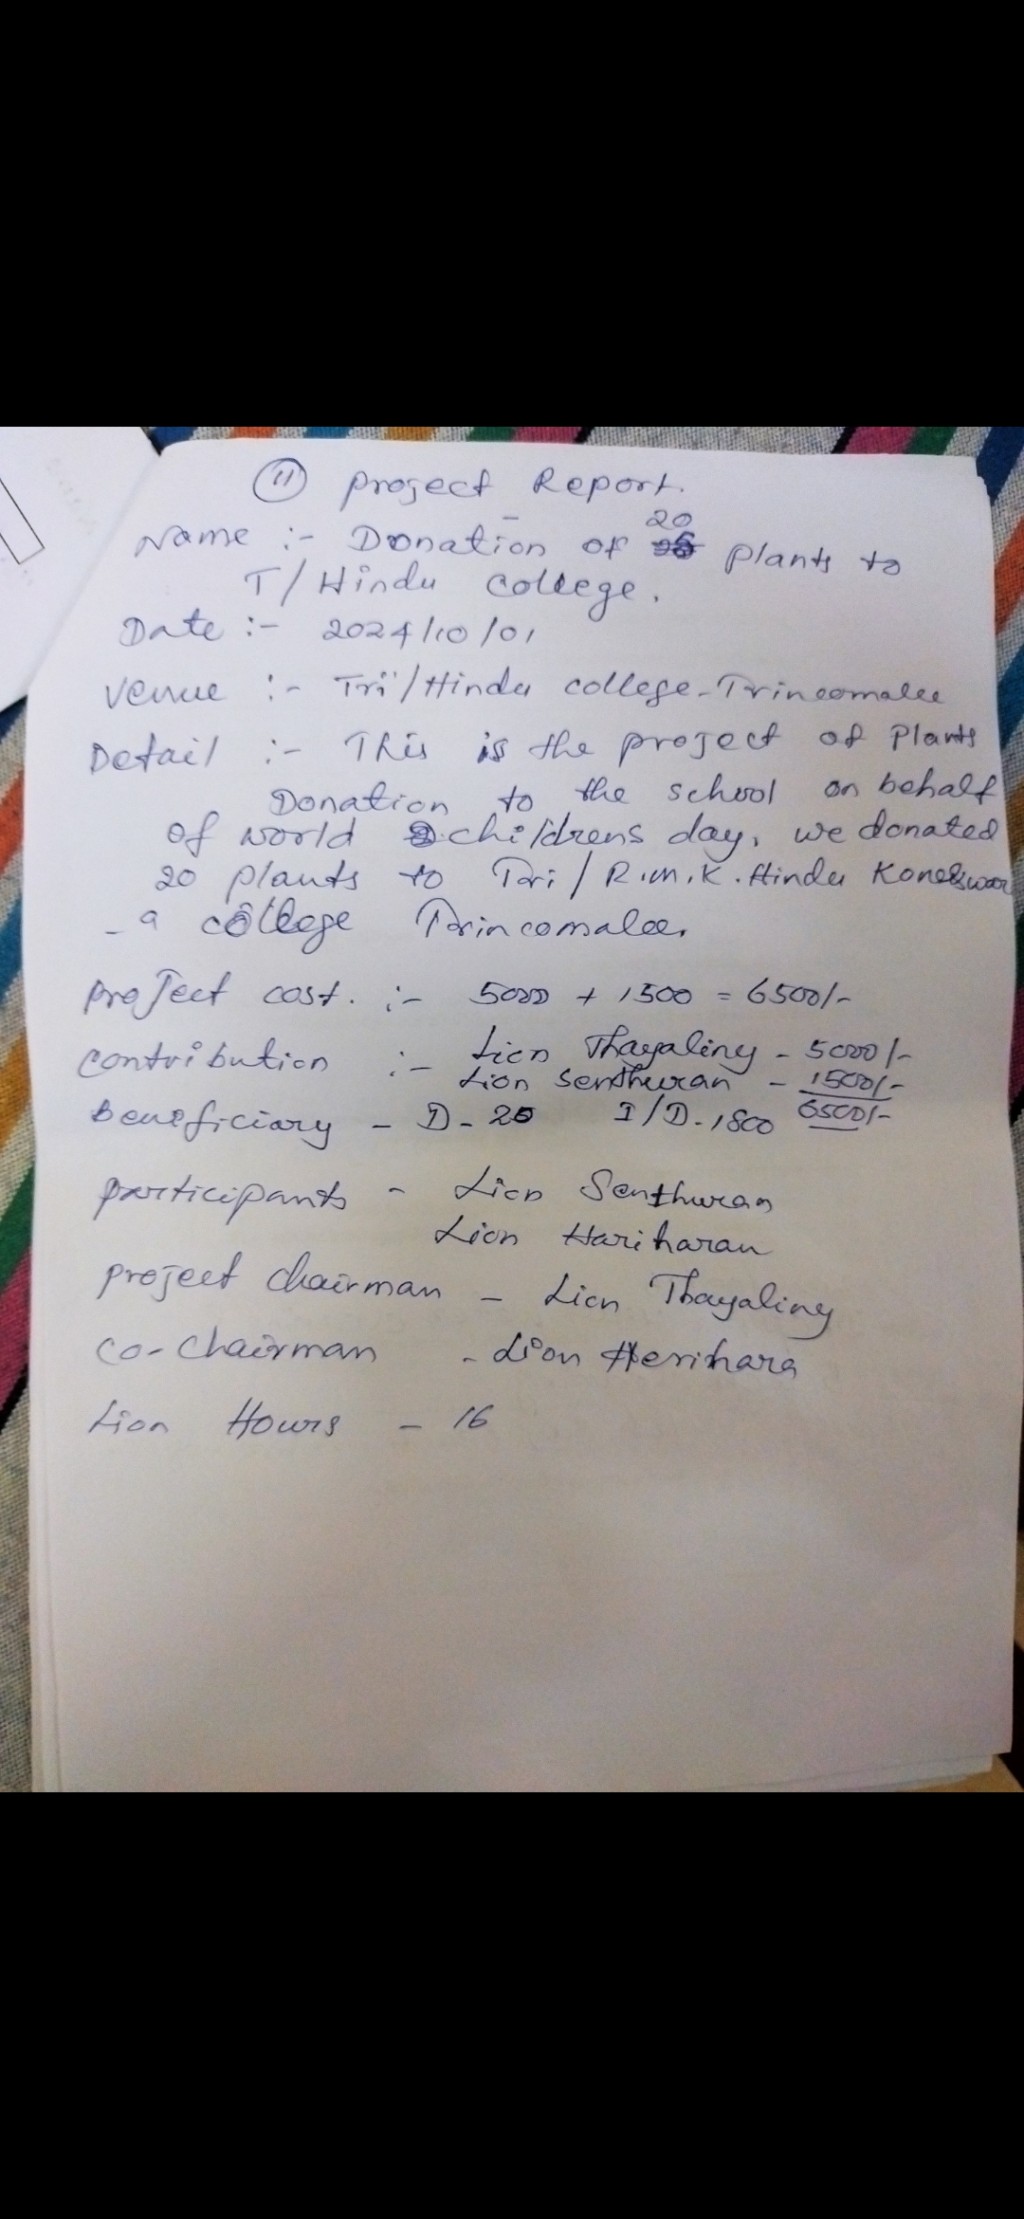 11 project Report.
Name :- Donation of 20 plants to
T/Hindu college.
Date :- 2024/10/01
Venue :- Tri/Hindu college-Trincomalee
Detail :- This is the project of Plants
Donation to the school on behalf
of world childrens day, we donated
20 plants to Tri/R.M.K. Hindu Koneswar
- a college Trincomalee.
project cost. :- 5000 + 1500 = 6500/-
contribution :- Lion Thayaliny - 5000/-
Lion Senthuran - 1500/-
6500/-
beneficiary - D- 20 I/D-1800
participants - Lion Senthuran
Lion Hariharan
project chairman - Lion Thayaliny
co-chairman - Lion Herihara
Lion Hours - 16